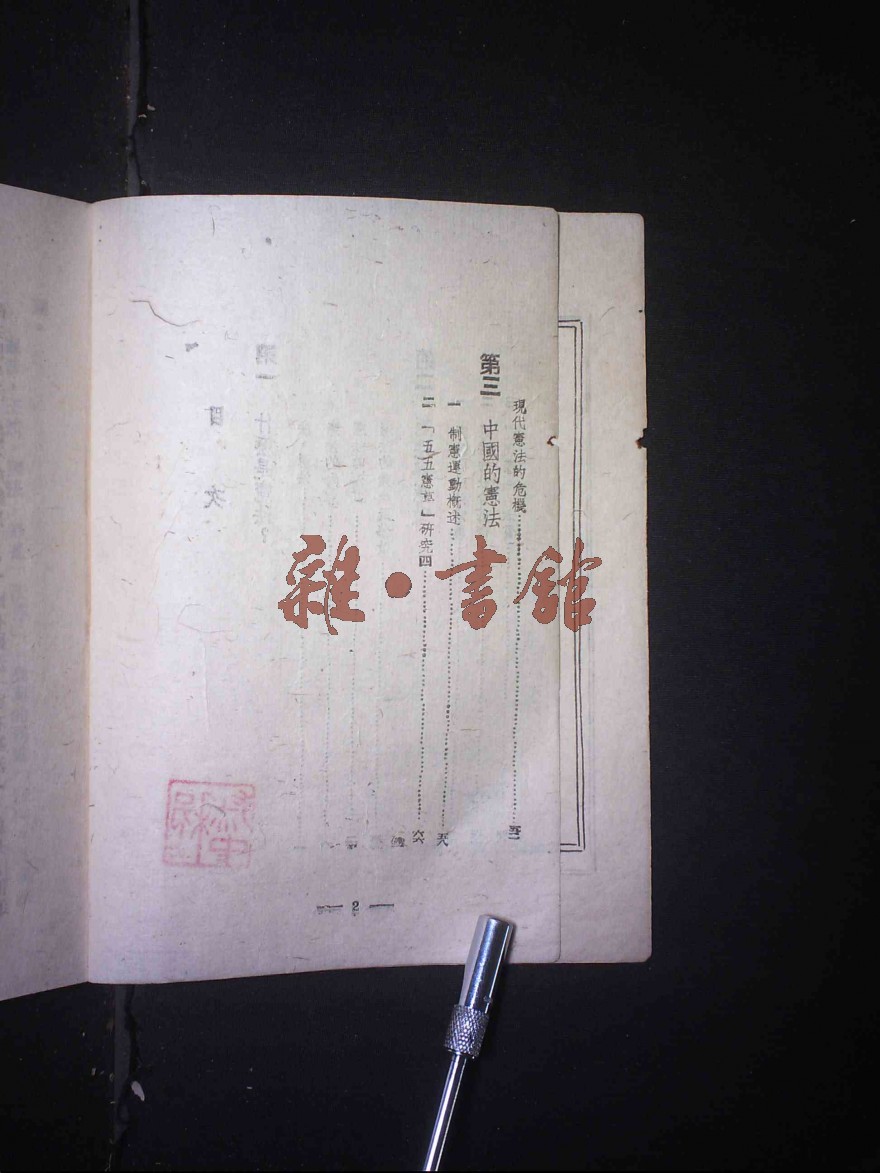 現代憲法的危機
第三 中國的憲法
一 制憲運動概述
二 「五五憲草」研究四
— 2 —
雜·書館